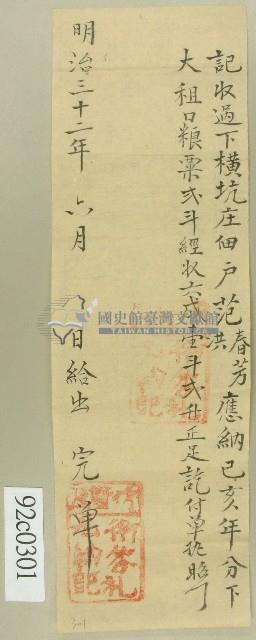 記收過下橫坑庄佃戶范春芳洪應納己亥年分下
大租口粮粟弍斗經收六成壹斗弍升正足訖付單執照了
明治三十二年 六月 日給出 完單
國史館臺灣文獻館
TAIWAN HISTORICA
92c0301
301